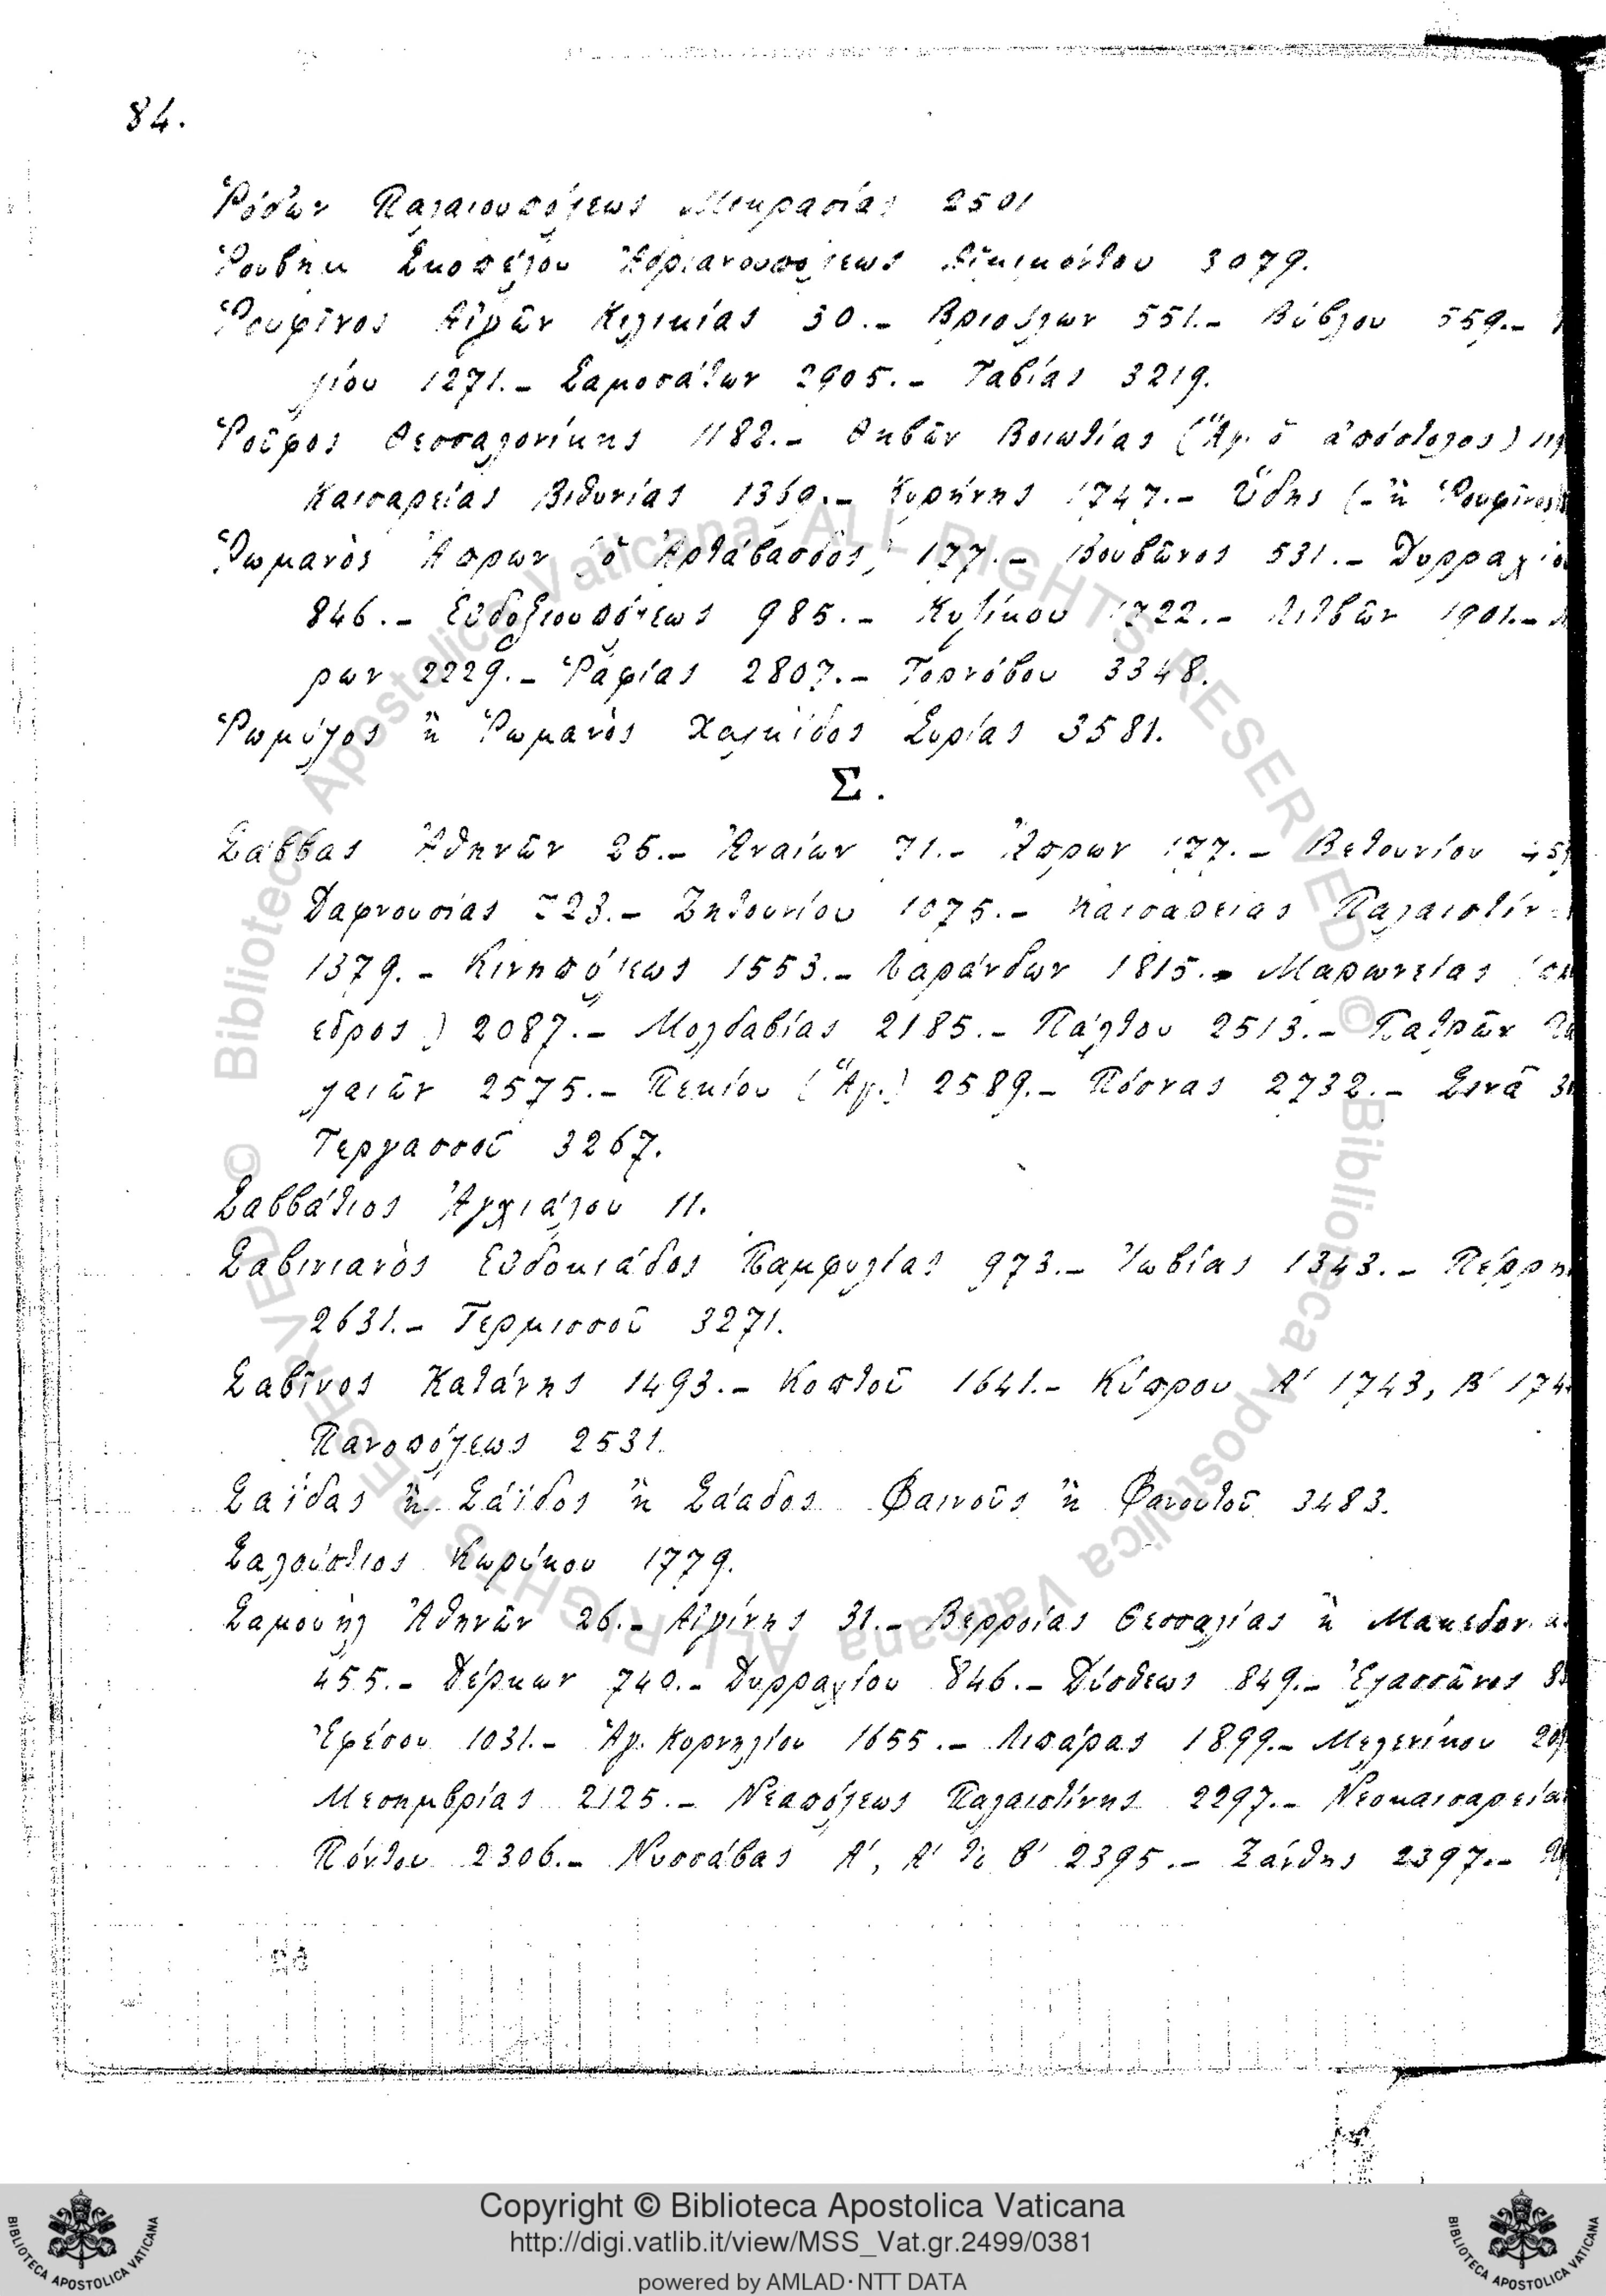 84.
Ῥόδων Παλαιουπόλεως Μικρασίας 2501
Ῥουβὴμ Σκοπέλου Ἀδριανουπόλεως Αἱμιμόντου 3079.
Ῥουφῖνος Αἰγῶν Κιλικίας 30.– Βριούλων 551.– Βύβλου 559.–
λίου 1271.– Σαμοσάτων 2905.– Ταβίας 3219.
Ῥοῦφος Θεσσαλονίκης 1182.– Θηβῶν Βοιωτίας (Ἅγ. ὁ ἀπόστολος)
Καισαρείας Βιθυνίας 1369.– Κυρήνης 1747.– Ὕδης (– ἢ Ῥουφῖνος)
Ῥωμανὸς Ἄπρων (ὁ Ἀρτάβασδος) 177.– Βουβῶνος 531.– Δυρραχίου
846.– Εὐδοξιουπόλεως 985.– Κυζίκου 1722.– Λιτβῶν 1901.–
ρων 2229.– Ῥαφίας 2807.– Τορνόβου 3348.
Ῥωμύλος ἢ Ῥωμανὸς Χαλκίδος Συρίας 3581.
Σ.
Σάββας Ἀθηνῶν 25.– Ἀναίων 71.– Ἄπρων 177.– Βητουνίου
Δαφνουσίας 723.– Ζητουνίου 1075.– Καισαρείας Παλαιστίν
1379.– Κινηπόλεως 1553.– Λαράνδων 1815.– Μαρωνείας
εδρος) 2087.– Μολδαβίας 2185.– Πάλτου 2513.– Πατρῶν Πα
λαιῶν 2575.– Πεκίου (Ἅγ.) 2589.– Πόσνας 2732.– Σινᾶ
Τεργασσοῦ 3267.
Σαββάτιος Ἀγχιάλου 11.
Σαβινιανὸς Εὐδοκιάδος Παμφυλίας 973.– Ἰωβίας 1343.– Πέρρης
2631.– Τερμισσοῦ 3271.
Σαβῖνος Κατάνης 1493.– Κοπτοῦ 1641.– Κύπρου Α΄ 1743, Β΄ 174
Πανοπόλεως 2531.
Σαΐδας ἢ Σάϊδος ἢ Σάαδος Φαινοῦς ἢ Φανουτοῦ 3483.
Σαλούστιος Κωρύκου 1779.
Σαμουὴλ Ἀθηνῶν 26.– Αἰγίνης 31.– Βερροίας Θεσσαλίας ἢ Μακεδονίας
455.– Δέρκων 740.– Δυρραχίου 846.– Δύσθεως 849.– Ἐλασσῶνος
Ἐφέσου 1031.– Ἁγ. Κορνηλίου 1655.– Λιπάρας 1899.– Μελενίκου
Μεσημβρίας 2125.– Νεαπόλεως Παλαιστίνης 2297.– Νεοκαισαρείας
Πόντου 2306.– Νυσσάβας Α΄, Α΄ τὸ β΄ 2395.– Ξάνθης 2397.–
Copyright © Biblioteca Apostolica Vaticana
http://digi.vatlib.it/view/MSS_Vat.gr.2499/0381
powered by AMLAD·NTT DATA
BIBLIOTECA APOSTOLICA VATICANA
BIBLIOTECA APOSTOLICA VATICANA